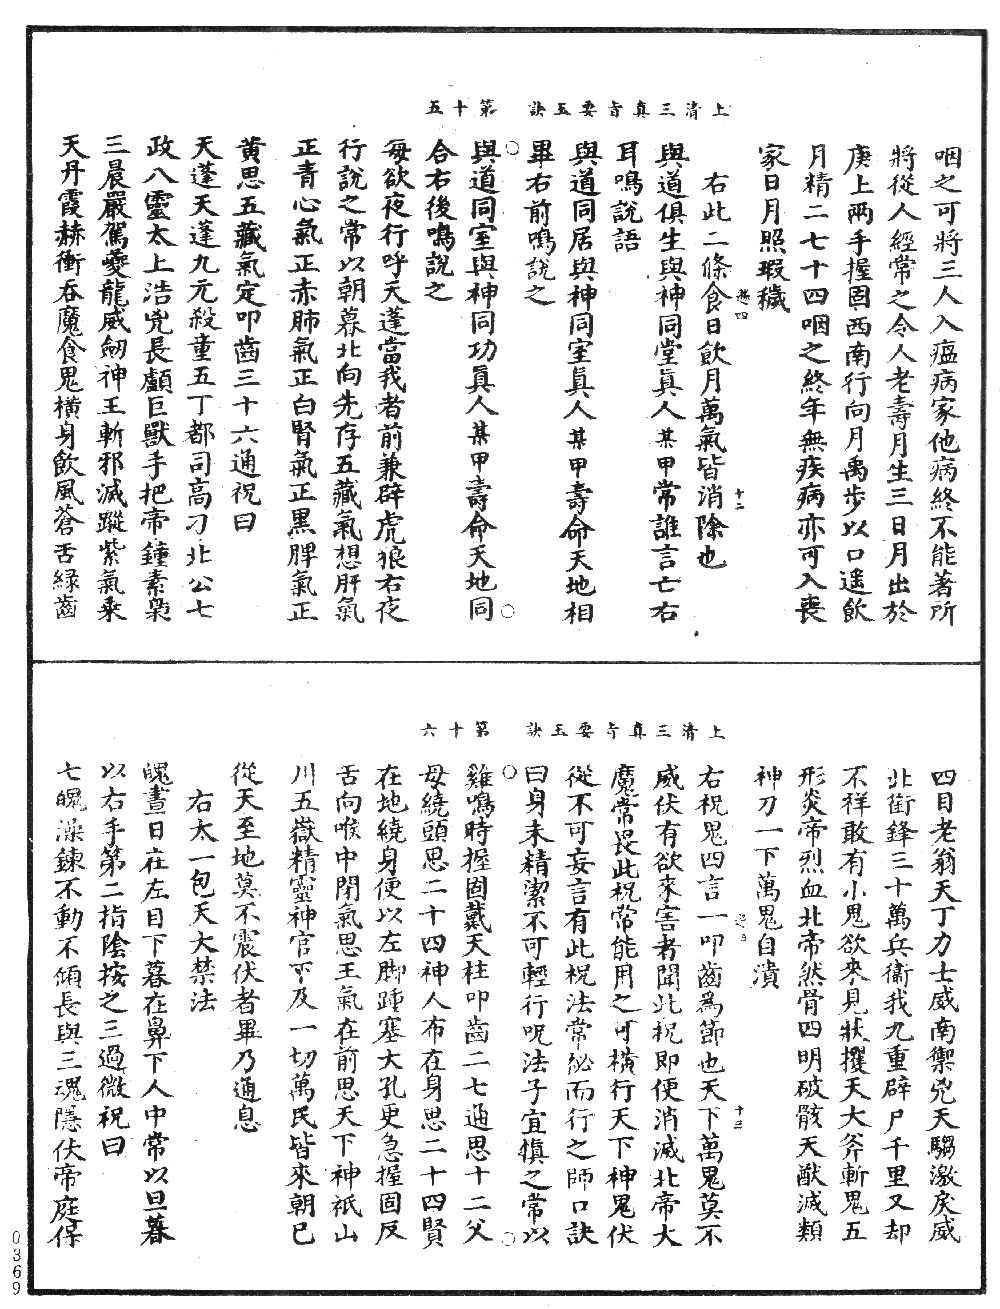 咽之可將三人入瘟病家他病終不能著所
將從人經常之令人老壽月生三日月出於
庚上兩手握固西南行向月禹步以口遥飲
月精二七十四咽之終年無疾病亦可入喪
家日月照瑕穢
上清三真旨要玉訣　第十五
右此二條食日飲月萬氣皆消除也
與道俱生與神同堂真人某甲常誰言亡右
耳鳴說語
與道同居與神同室真人某甲壽命天地相
畢右前鳴說之
與道同室與神同功真人某甲壽命天地同
合右後鳴說之
每欲夜行呼天蓬當我者前兼辟虎狼右夜
行說之常以朝暮北向先存五藏氣想肝氣
正青心氣正赤肺氣正白腎氣正黑脾氣正
黃思五藏氣定叩齒三十六通祝曰
天蓬天蓬九元殺童五丁都司高刁北公七
政八靈太上浩兇長顱巨獸手把帝鐘素梟
三晨嚴駕夔龍威劒神王斬邪滅蹤紫氣乘
天丹霞赫衝吞魔食鬼橫身飲風蒼舌緑齒
四目老翁天丁力士威南禦兇天騶激戾威
北銜鋒三十萬兵衞我九重辟尸千里又却
不祥敢有小鬼欲來見狀攫天大斧斬鬼五
形炎帝烈血北帝然骨四明破骸天猷滅類
神刀一下萬鬼自潰
上清三真旨要玉訣　第十六
右祝鬼四言一叩齒爲節也天下萬鬼莫不
威伏有欲來害者聞此祝即便消滅北帝大
魔常畏此祝常能用之可橫行天下神鬼伏
從不可妄言有此祝法常祕而行之師口訣
曰身未精潔不可輕行呪法子宜慎之常以
雞鳴時握固戴天柱叩齒二七通思十二父
母繞頭思二十四神人布在身思二十四賢
在地繞身便以左脚踵塞大孔更急握固反
舌向喉中閉氣思王氣在前思天下神祇山
川五嶽精靈神官下及一切萬民皆來朝已
從天至地莫不震伏者畢乃通息
右太一包天大禁法
魄晝日在左目下暮在鼻下人中常以旦暮
以右手第二指陰按之三過微祝曰
七魄澡鍊不動不傾長與三魂隱伏帝庭保
0369